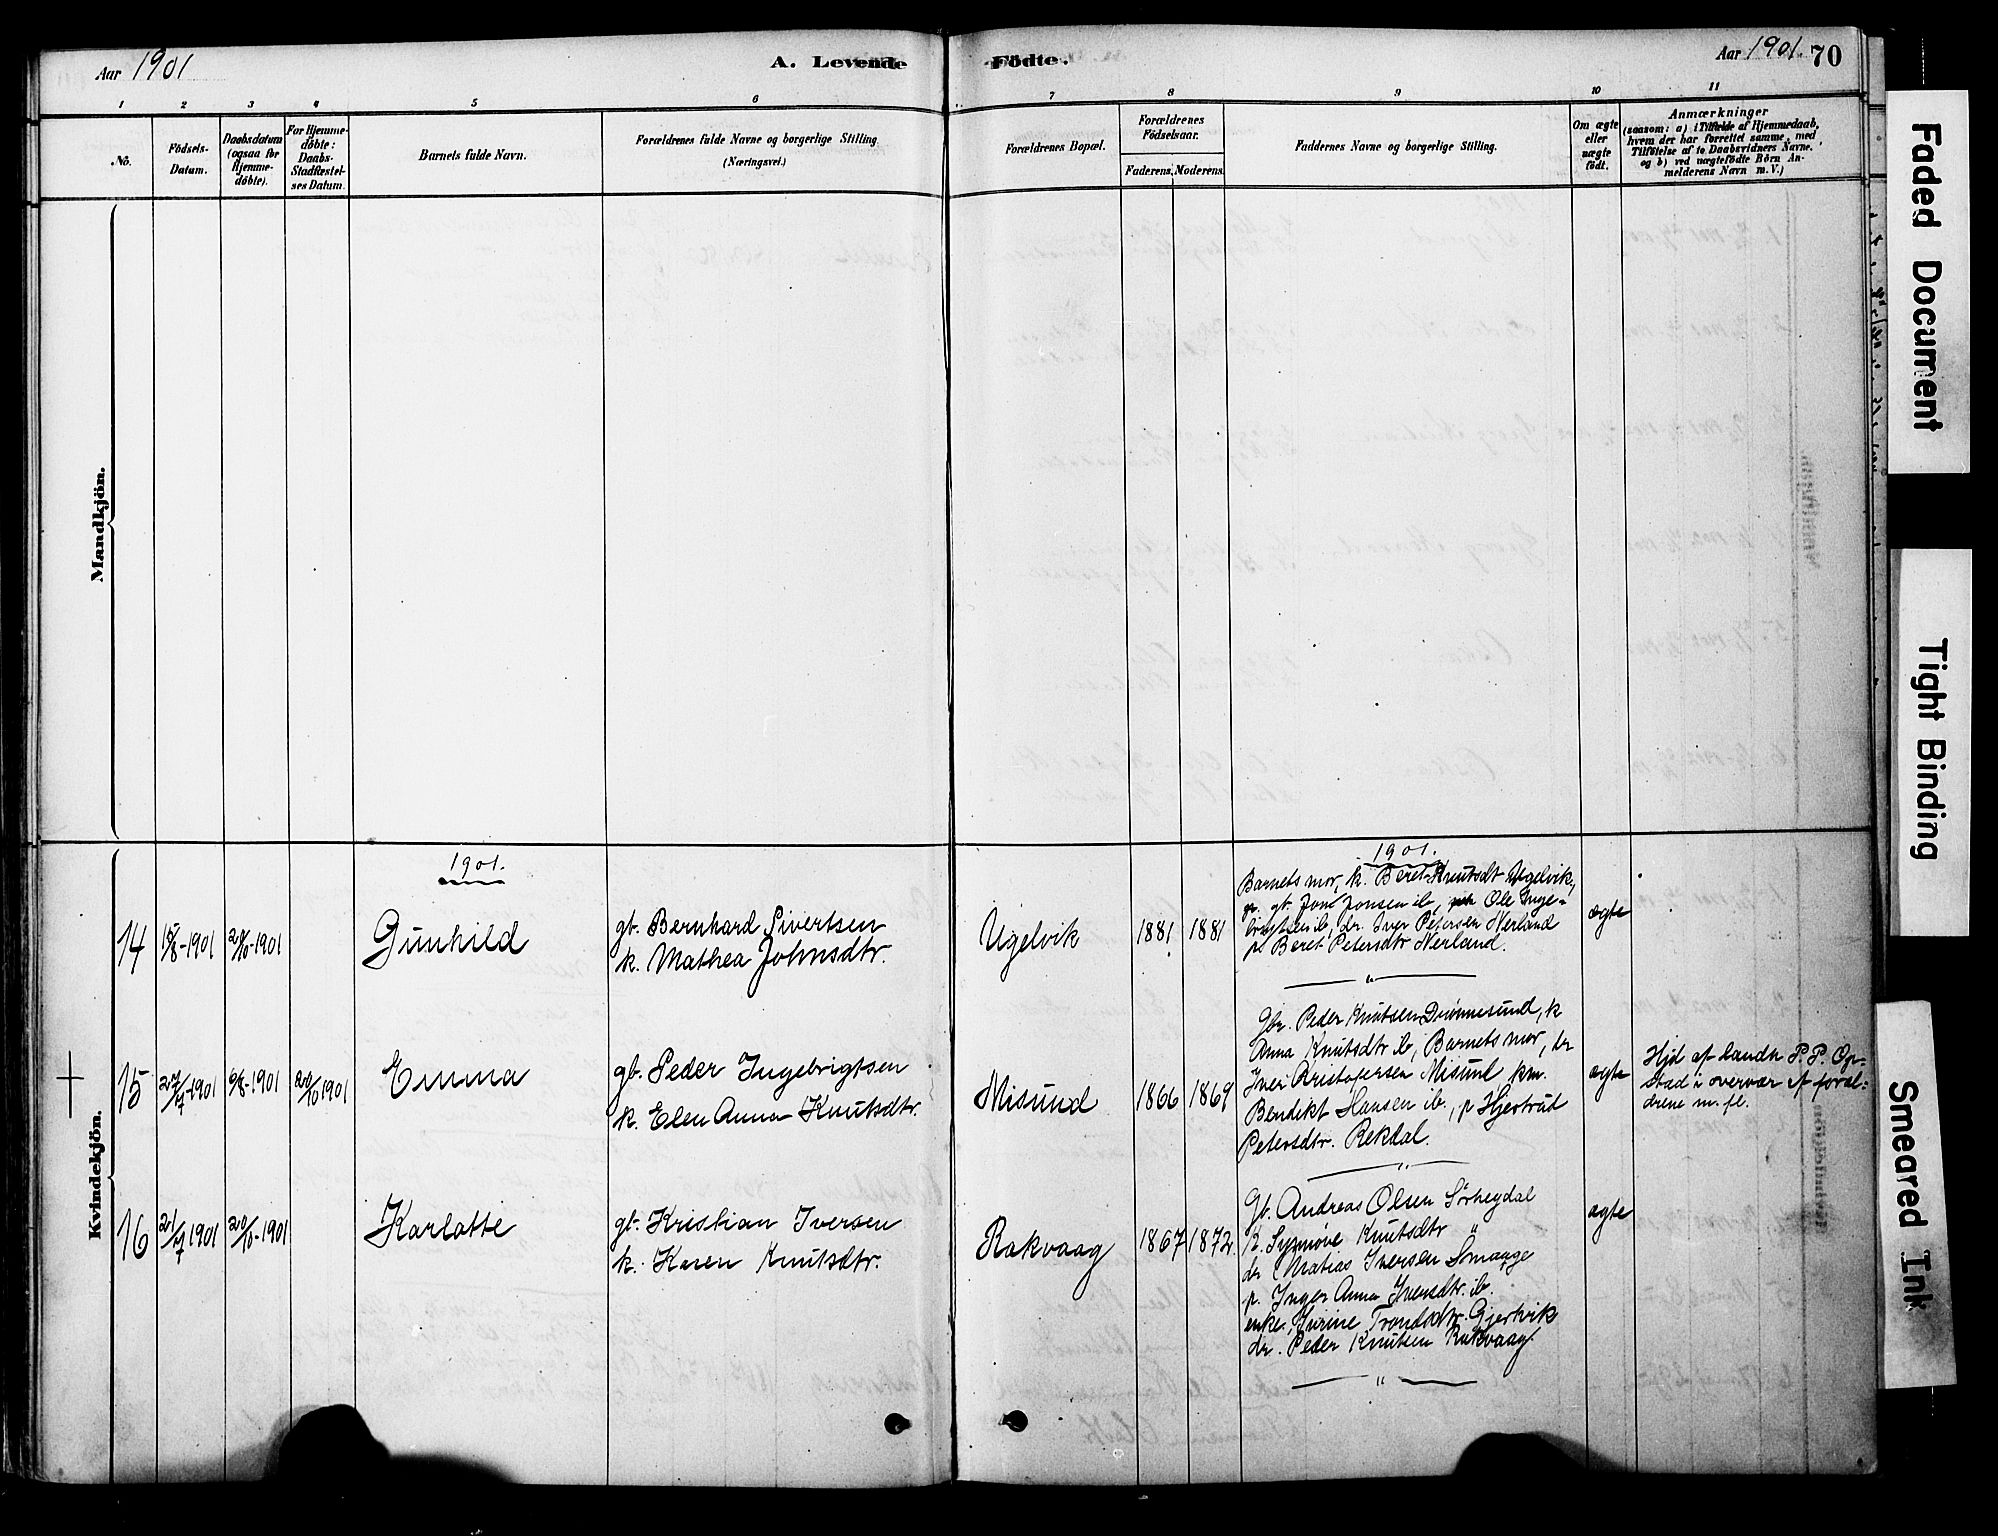 Aar 1901
A. Levende
Födte.
Aar 1901. 70
1 2 3 4 5 6 7 8 9 10 11
No.
Födsels-
Datum.
Daabsdatum
(ogsaa for
Hjemme-
döbte).
For Hjemme-
döbte:
Daabs-
Stadfæstel-
ses Datum.
Barnets fulde Navn.
Forældrenes fulde Navne og borgerlige Stilling
(Næringsvei.)
Forældrenes Bopæl.
Forældrenes
Födselsaar.
Faderens. Moderens.
Faddernes Navne og borgerlige Stilling.
Om ægte
eller
uægte
födt.
Anmærkninger
(saasom: a) i Tilfælde af Hjemmedaab,
hvem der har forrettet samme, med
Tilföielse af to Daabsvidners Navne.
og b) ved uægtefödte Börn An-
melderens Navn m. V.)
Mandkjön.
Kvindekjön.
1901.
1901.
14 15/8-1901 20/10-1901 Gunhild
gb. Bernhard Sivertsen
k. Mathea Johnsdtr.
Ugelvik 1881 1881
Barnets mor, k. Beret Knutsdt Ugelvik,
gb. Jon Jonsen ib, Ole Inge-
brigtsen ib, dr. Iver Petersen Nerland
p. Beret Petersdtr Nerland.
ægte
15 27/7-1901 9/8-1901 20/10 1901 Emma
gb. Peder Ingebrigtsen
k. Elen Anna Knutsdtr.
Misund 1866 1869
Gbr. Peder Knutsen Drönnesund, k
Anna Knutsdtr ib, Barnets mor, dr
Iver Kristofersen Misund km.
Bendikt Hansen ib., p Hjertrud
Petersdtr. Rekdal.
ægte
Hjd af landh P. P. Op-
stad i overvær af foræl-
drene m. fl.
16 21/7 1901 20/10-1901 Karlotte
gb. Kristian Iversen
k. Karen Knutsdtr.
Rakvaag 1867 1872.
Gb. Andreas Olsen Sörheydal
K. Synnöve Knutsdtr "
dr Matias Iversen Smaage
p. Inger Anna Iversdtr. ib.
enke, Jurine Trondsdtr. Gjertvik
dr. Peder Knutsen Rakvaag
ægte
Faded Document
Tight Binding
Smeared Ink